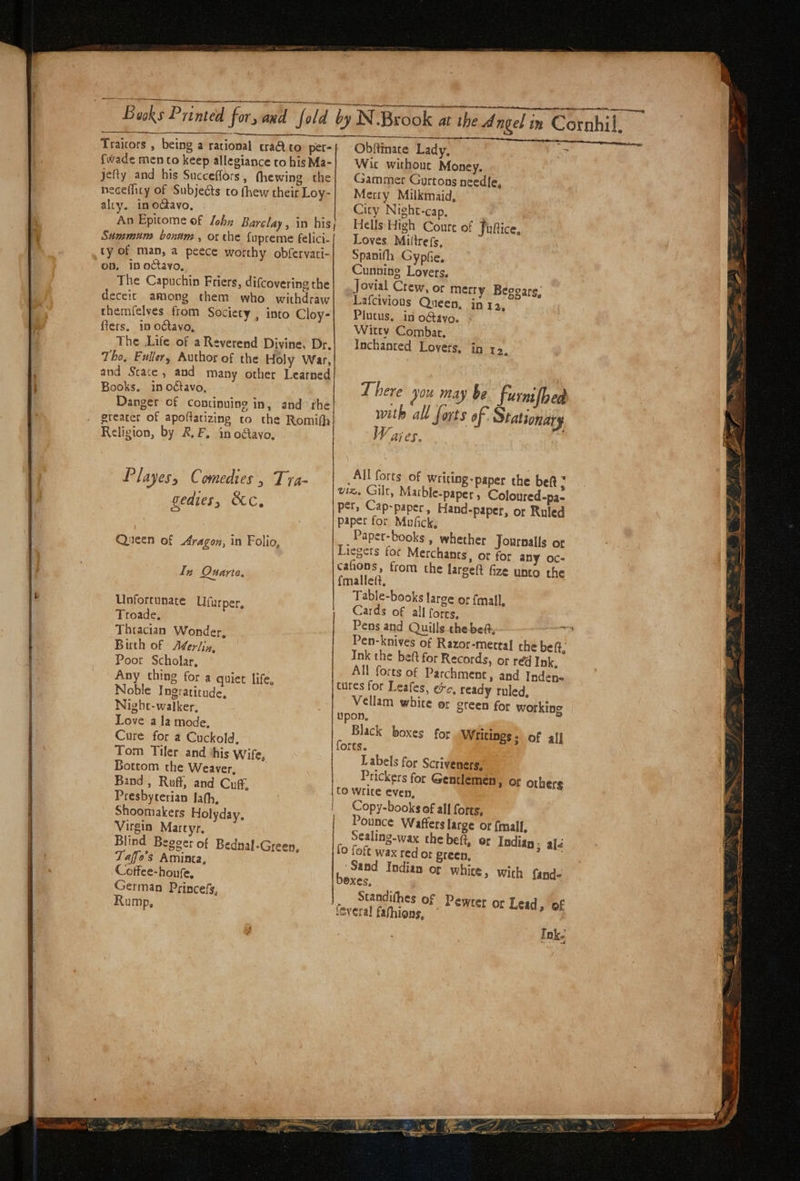 Books Printed for, and ſold by N. Brook at the Angel in Cornhil.
Traitors, being a rational tract to per-
ſwade men to keep allegiance to his Ma-
jeſty and his Succeſſors, ſhewing the
neceſſity of Subjects to ſhew their Loy-
alty. in octavo.
An Epitome of John Barclay, in his
Summum bonum, or the ſupreme felici-
ty of man, a peece worthy obſervati-
on, in octavo.
The Capuchin Friers, diſcovering the
deceit among them who withdraw
themſelves from Society, into Cloy-
ſters. in octavo.
The Life of a Reverend Divine, Dr.
Tho. Fuller, Author of the Holy War,
and State, and many other Learned
Books. in octavo.
Danger of continuing in, and the
greater of apoſtatizing to the Romiſh
Religion, by R. F. in octavo.
Playes, Comedies, Tra-
gedies, &c.
Queen of Aragon, in Folio,
In Quarto.
Unfortunate Uſurper,
Troade,
Thracian Wonder,
Birth of Merlin,
Poor Scholar,
Any thing for a quiet life,
Noble Ingratitude,
Night-walker,
Love a la mode,
Cure for a Cuckold,
Tom Tiler and his Wife,
Bottom the Weaver,
Band, Ruff, and Cuff,
Presbyterian laſh,
Shoomakers Holyday,
Virgin Martyr,
Blind Begger of Bednal-Green,
Taſſo's Aminta,
Coffee-houſe,
German Princeſs,
Rump,
Obſtinate Lady,
Wit without Money.
Gammer Gurtons needle,
Merry Milkmaid,
City Night-cap.
Hells High Court of Juſtice,
Loves Miſtreſs,
Spaniſh Gypſie.
Cunning Lovers.
Jovial Crew, or merry Beggars,
Laſcivious Queen, in 12,
Plutus, in octavo.
Witty Combat,
Inchanted Lovers, in 12.
There you may be furniſhed
with all ſorts of Stationary
Wares.
All ſorts of writing-paper the beſt;
viz. Gilt, Marble-paper, Coloured-pa-
per, Cap-paper, Hand-paper, or Ruled
paper for Muſick,
Paper-books, whether Journalls or
Liegers for Merchants, or for any oc-
caſions, from the largeſt ſize unto the
ſmalleſt,
Table-books large or ſmall,
Cards of all ſorts,
Pens and Quills the beſt,
Pen-knives of Razor-mettal the beſt,
Ink the beſt for Records, or red Ink,
All ſorts of Parchment, and Inden-
tures for Leaſes, &c. ready ruled,
Vellam white or green for working
upon,
Black boxes for Writings; of all
ſorts.
Labels for Scriveners,
Prickers for Gentlemen, or others
to write even,
Copy-books of all ſorts,
Pounce Waffers large or ſmall,
Sealing-wax the beſt, or Indian, al-
ſo ſoft wax red or green,
Sand Indian or white, with ſand-
boxes,
Standiſhes of Pewter or Lead, of
ſeveral faſhions,
Ink-